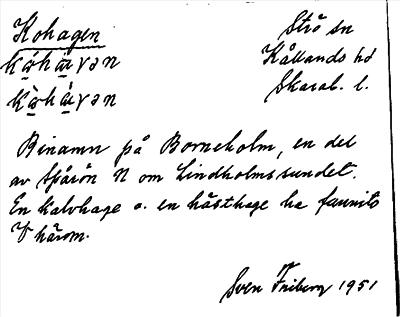 Kohagen
Strö sn
kó̤hà̤ɣən
Kållands hd
kò̤hà̤ɣən
Skarab. l.
Binamn på Borneholm, en del
av Spårön N om Lindholmssundet.
En kalvhage o. en hästhage ha funnits
V härom.
Sven Friberg 1951